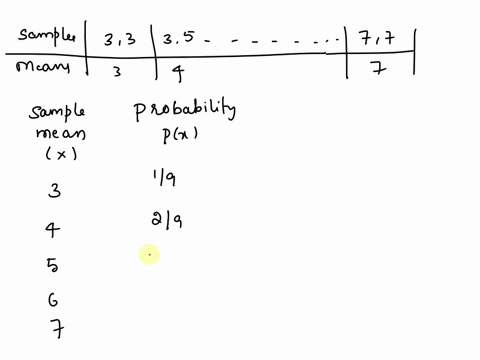 Samples 3,3 3.5 - - - - - - - ... 7,7
means 3 4 7
Sample Probability
mean p(x)
(x)
3 1/9
4 2/9
5
6
7